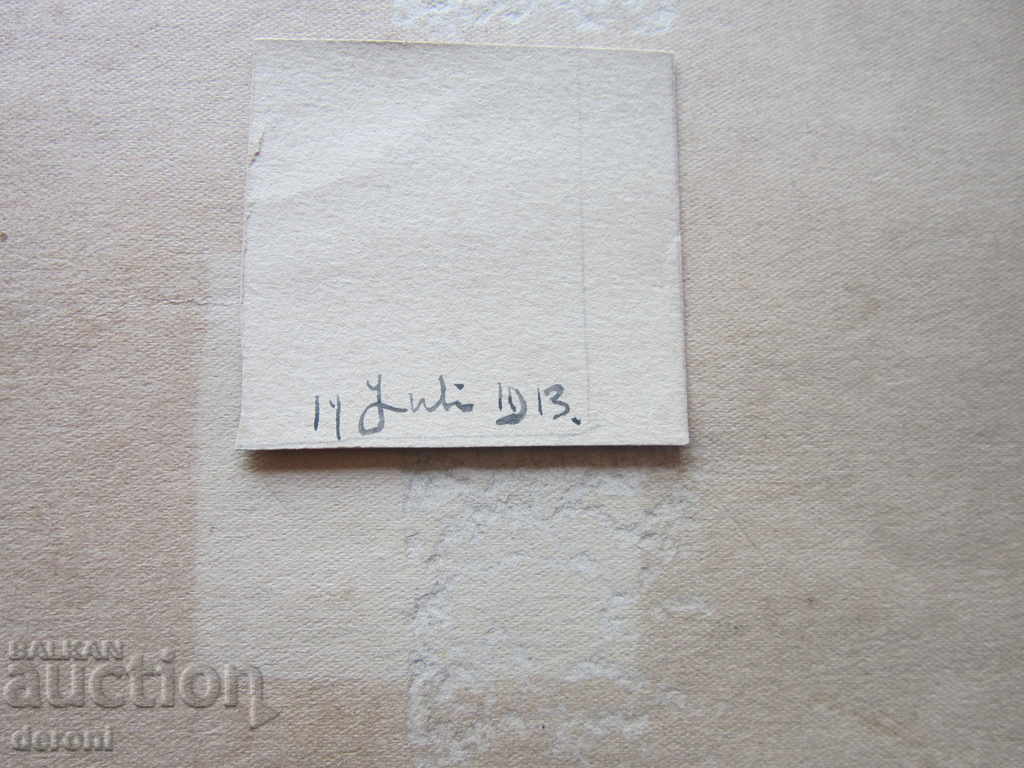 19 Juli 1913.
BALKAN
auction
deroni